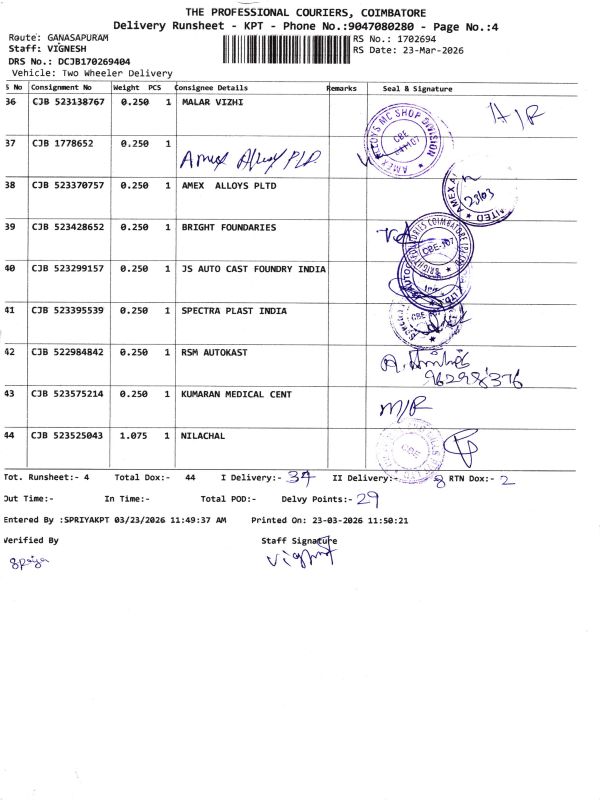 THE PROFESSIONAL COURIERS, COIMBATORE
Delivery Runsheet - KPT - Phone No.:9047080280 - Page No.:4
Route: GANASAPURAM
RS No.: 1702694
Staff: VIGNESH
RS Date: 23-Mar-2026
DRS No.: DCJB170269404
Vehicle: Two Wheeler Delivery
S No Consignment No Weight PCS Consignee Details Remarks Seal & Signature
36 CJB 523138767 0.250 1 MALAR VIZHI
37 CJB 1778652 0.250 1 Amex Alloys P LD
AMEX ALLOYS MC SHOP DIVISION CBE 641107
38 CJB 523370757 0.250 1 AMEX ALLOYS PLTD
AMEX 23/03
39 CJB 523428652 0.250 1 BRIGHT FOUNDARIES
CBE-107
40 CJB 523299157 0.250 1 JS AUTO CAST FOUNDRY INDIA
41 CJB 523395539 0.250 1 SPECTRA PLAST INDIA
CBE
42 CJB 522984842 0.250 1 RSM AUTOKAST
43 CJB 523575214 0.250 1 KUMARAN MEDICAL CENT M/R
44 CJB 523525043 1.075 1 NILACHAL
CBE
Tot. Runsheet:- 4 Total Dox:- 44 I Delivery:- 34 II Delivery:- 8 RTN Dox:- 2
Out Time:- In Time:- Total POD:- Delvy Points:- 29
Entered By :SPRIYAKPT 03/23/2026 11:49:37 AM Printed On: 23-03-2026 11:50:21
Verified By Staff Signature